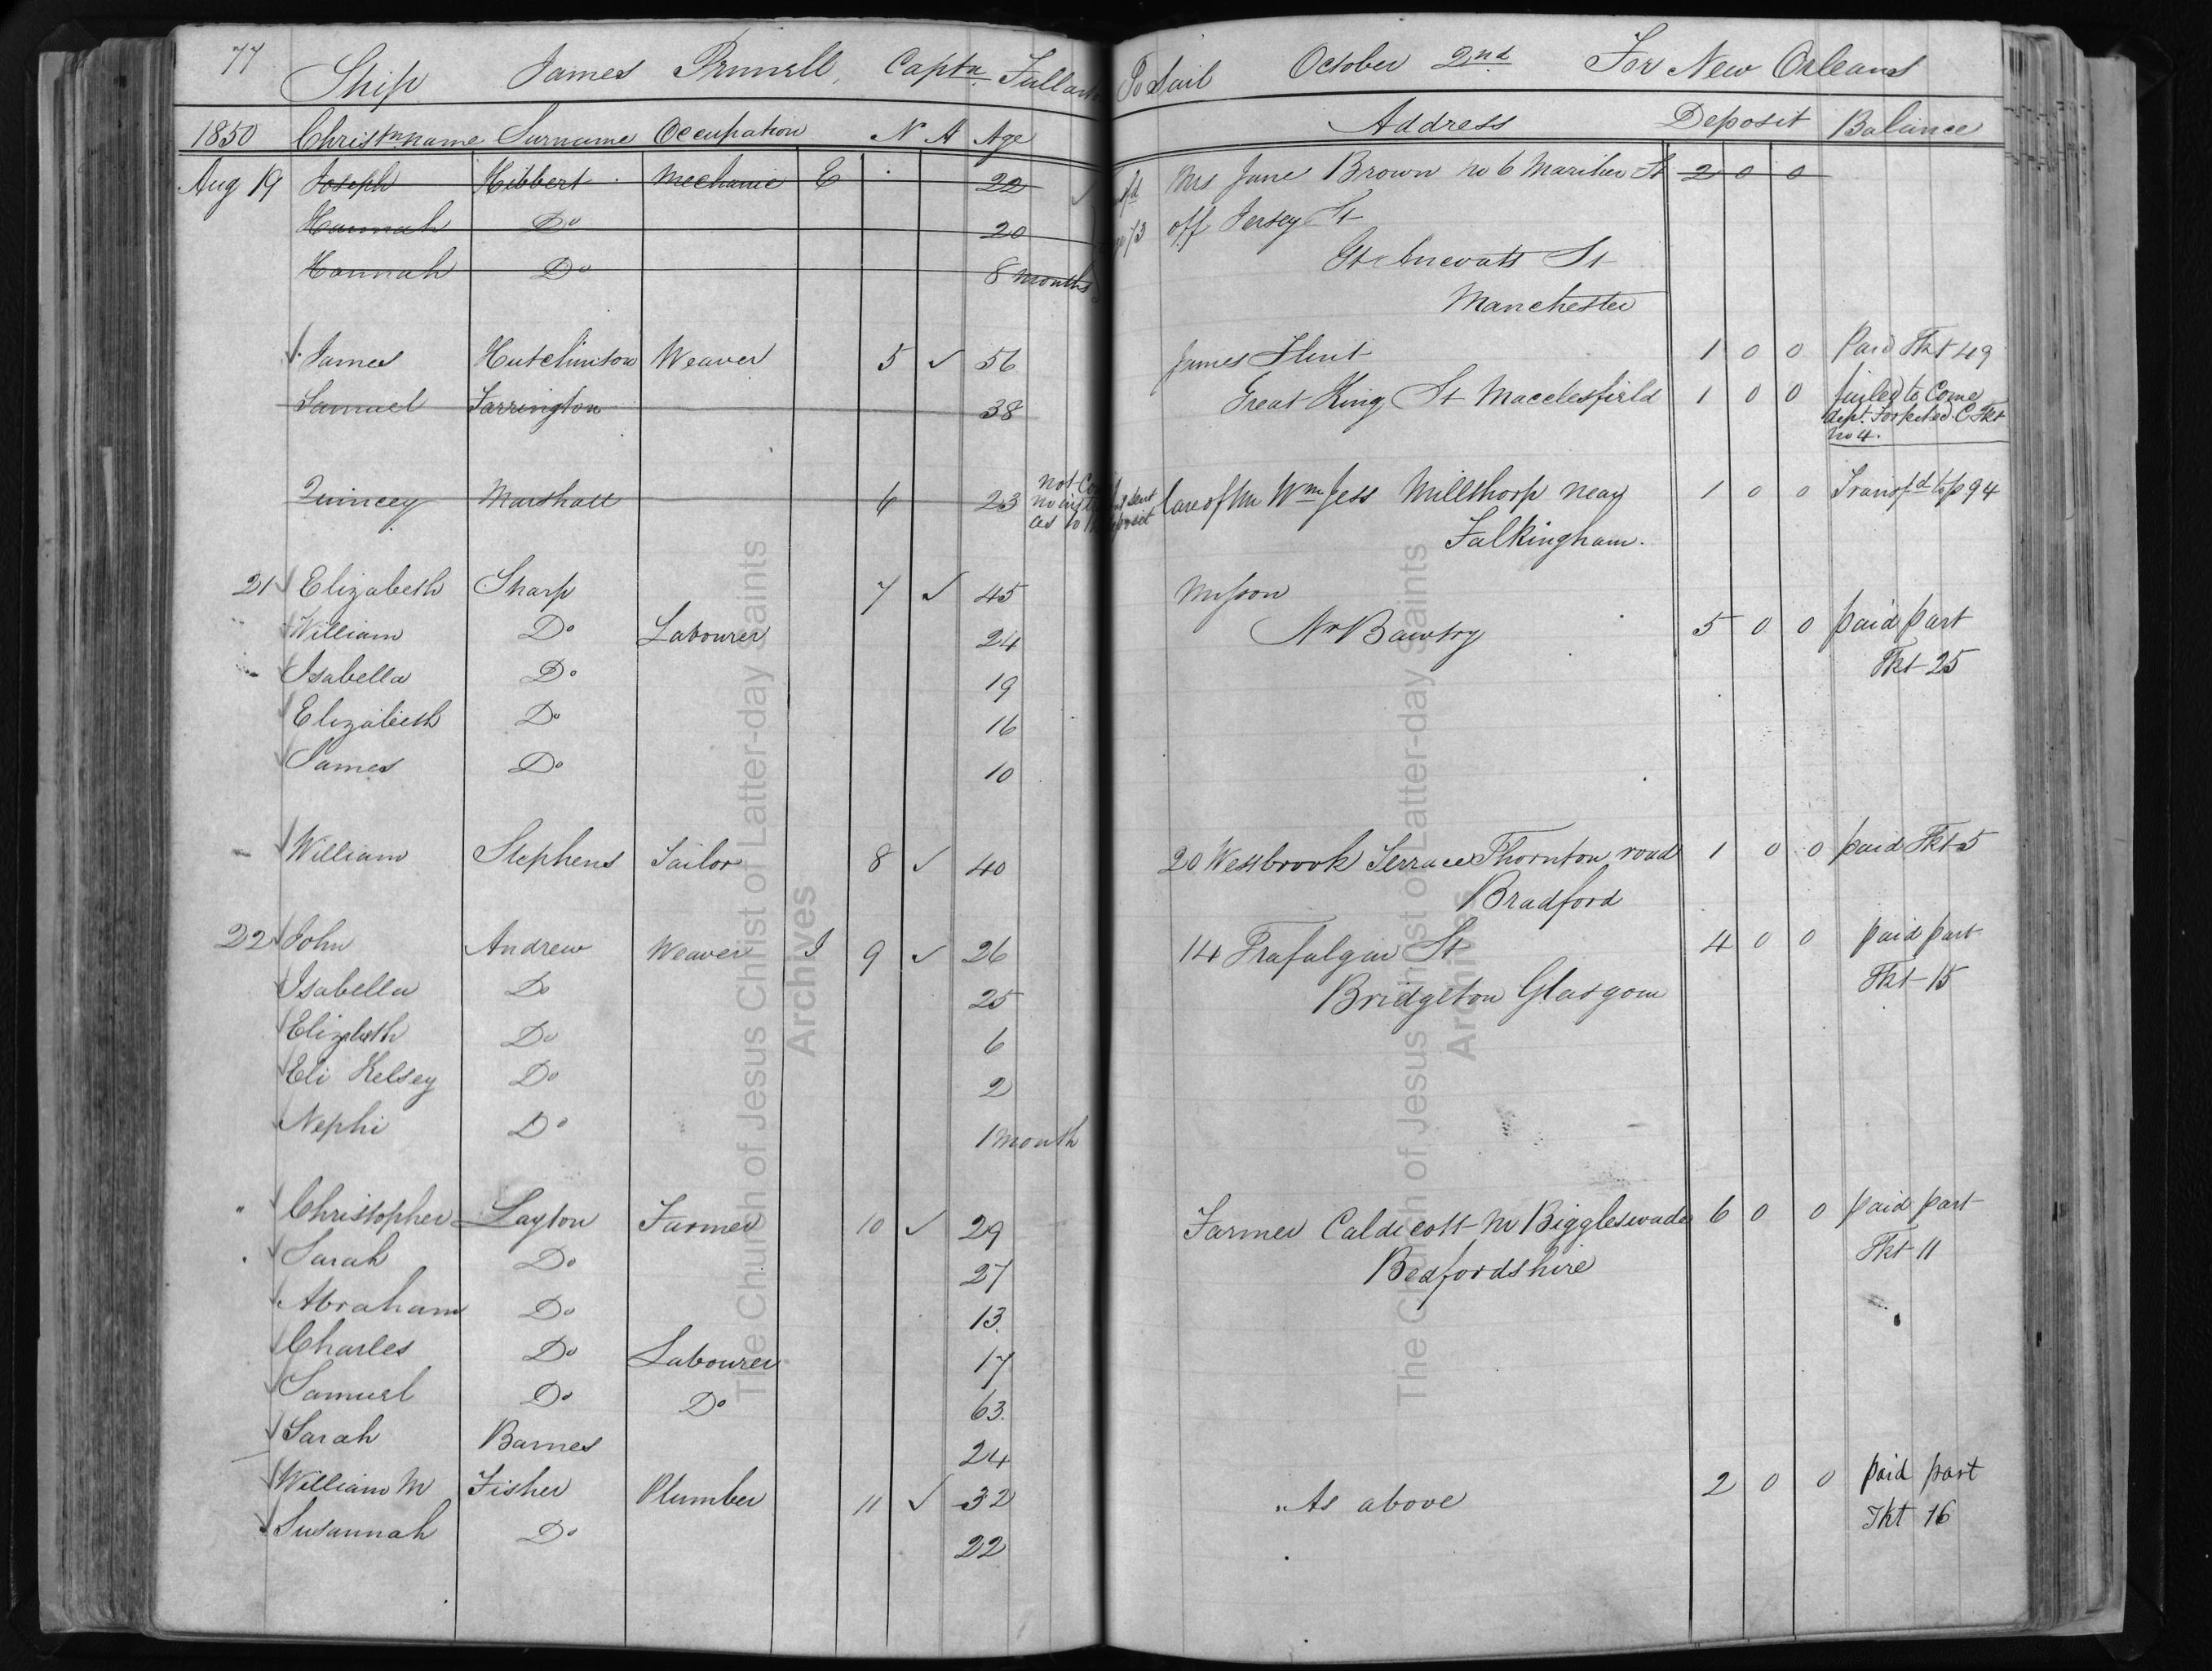 77 Ship James Pennell, Captn. Fullar To Sail October 2nd For New Orleans
1850 Christn. name Surname Occupation N A Age Address Deposit Balance
Aug 19 Joseph Hibbert Mechanic E 22 Mrs Jane Brown no 6 Mariher St 2 0 0
Hannah Do 20 off Jersey St
Hannah Do 8 months Gt Ancoats St
Manchester
James Hutchinson Weaver 5 ✓ 56 James Flint 1 0 0 Paid Tkt 49
Samuel Farrington 38 Great King St Macclesfield 1 0 0 failed to Come
dept. Forfeited C Tkt
no 4.
Quincey Marshall 6 23 not no sent as to deposit Care of Mr Wm Jess Millthorp near 1 0 0 Transfd to p 94
Falkingham.
21 Elizabeth Sharp 7 ✓ 45 Misson
William Do Labourer 24 Nr Bawtry 5 0 0 paid part
Isabella Do 19 Tkt 25
Elizabeth Do 16
James Do 10
William Stephens Tailor 8 ✓ 40 20 Westbrook Terrace Thornton road 1 0 0 paid Tkt 5
Bradford
22 John Andrew Weaver I 9 ✓ 26 14 Trafalgar St 4 0 0 paid part
Isabella Do 25 Bridgeton Glasgow Tkt 15
Elizabeth Do 6
Eli Kelsey Do 2
Nephi Do 1 month
" Christopher Layton Farmer 10 ✓ 29 Farmer Caldicott Nr Biggleswade 6 0 0 paid part
Sarah Do 27 Bedfordshire Tkt 11
Abraham Do 13
Charles Do Labourer 17
Samuel Do Do 63
Sarah Barnes 24
William M Fisher Plumber 11 ✓ 32 As above 2 0 0 paid part
Susannah Do 22 Tkt 16
The Church of Jesus Christ of Latter-day Saints
Archives
The Church of Jesus Christ of Latter-day Saints
Archives